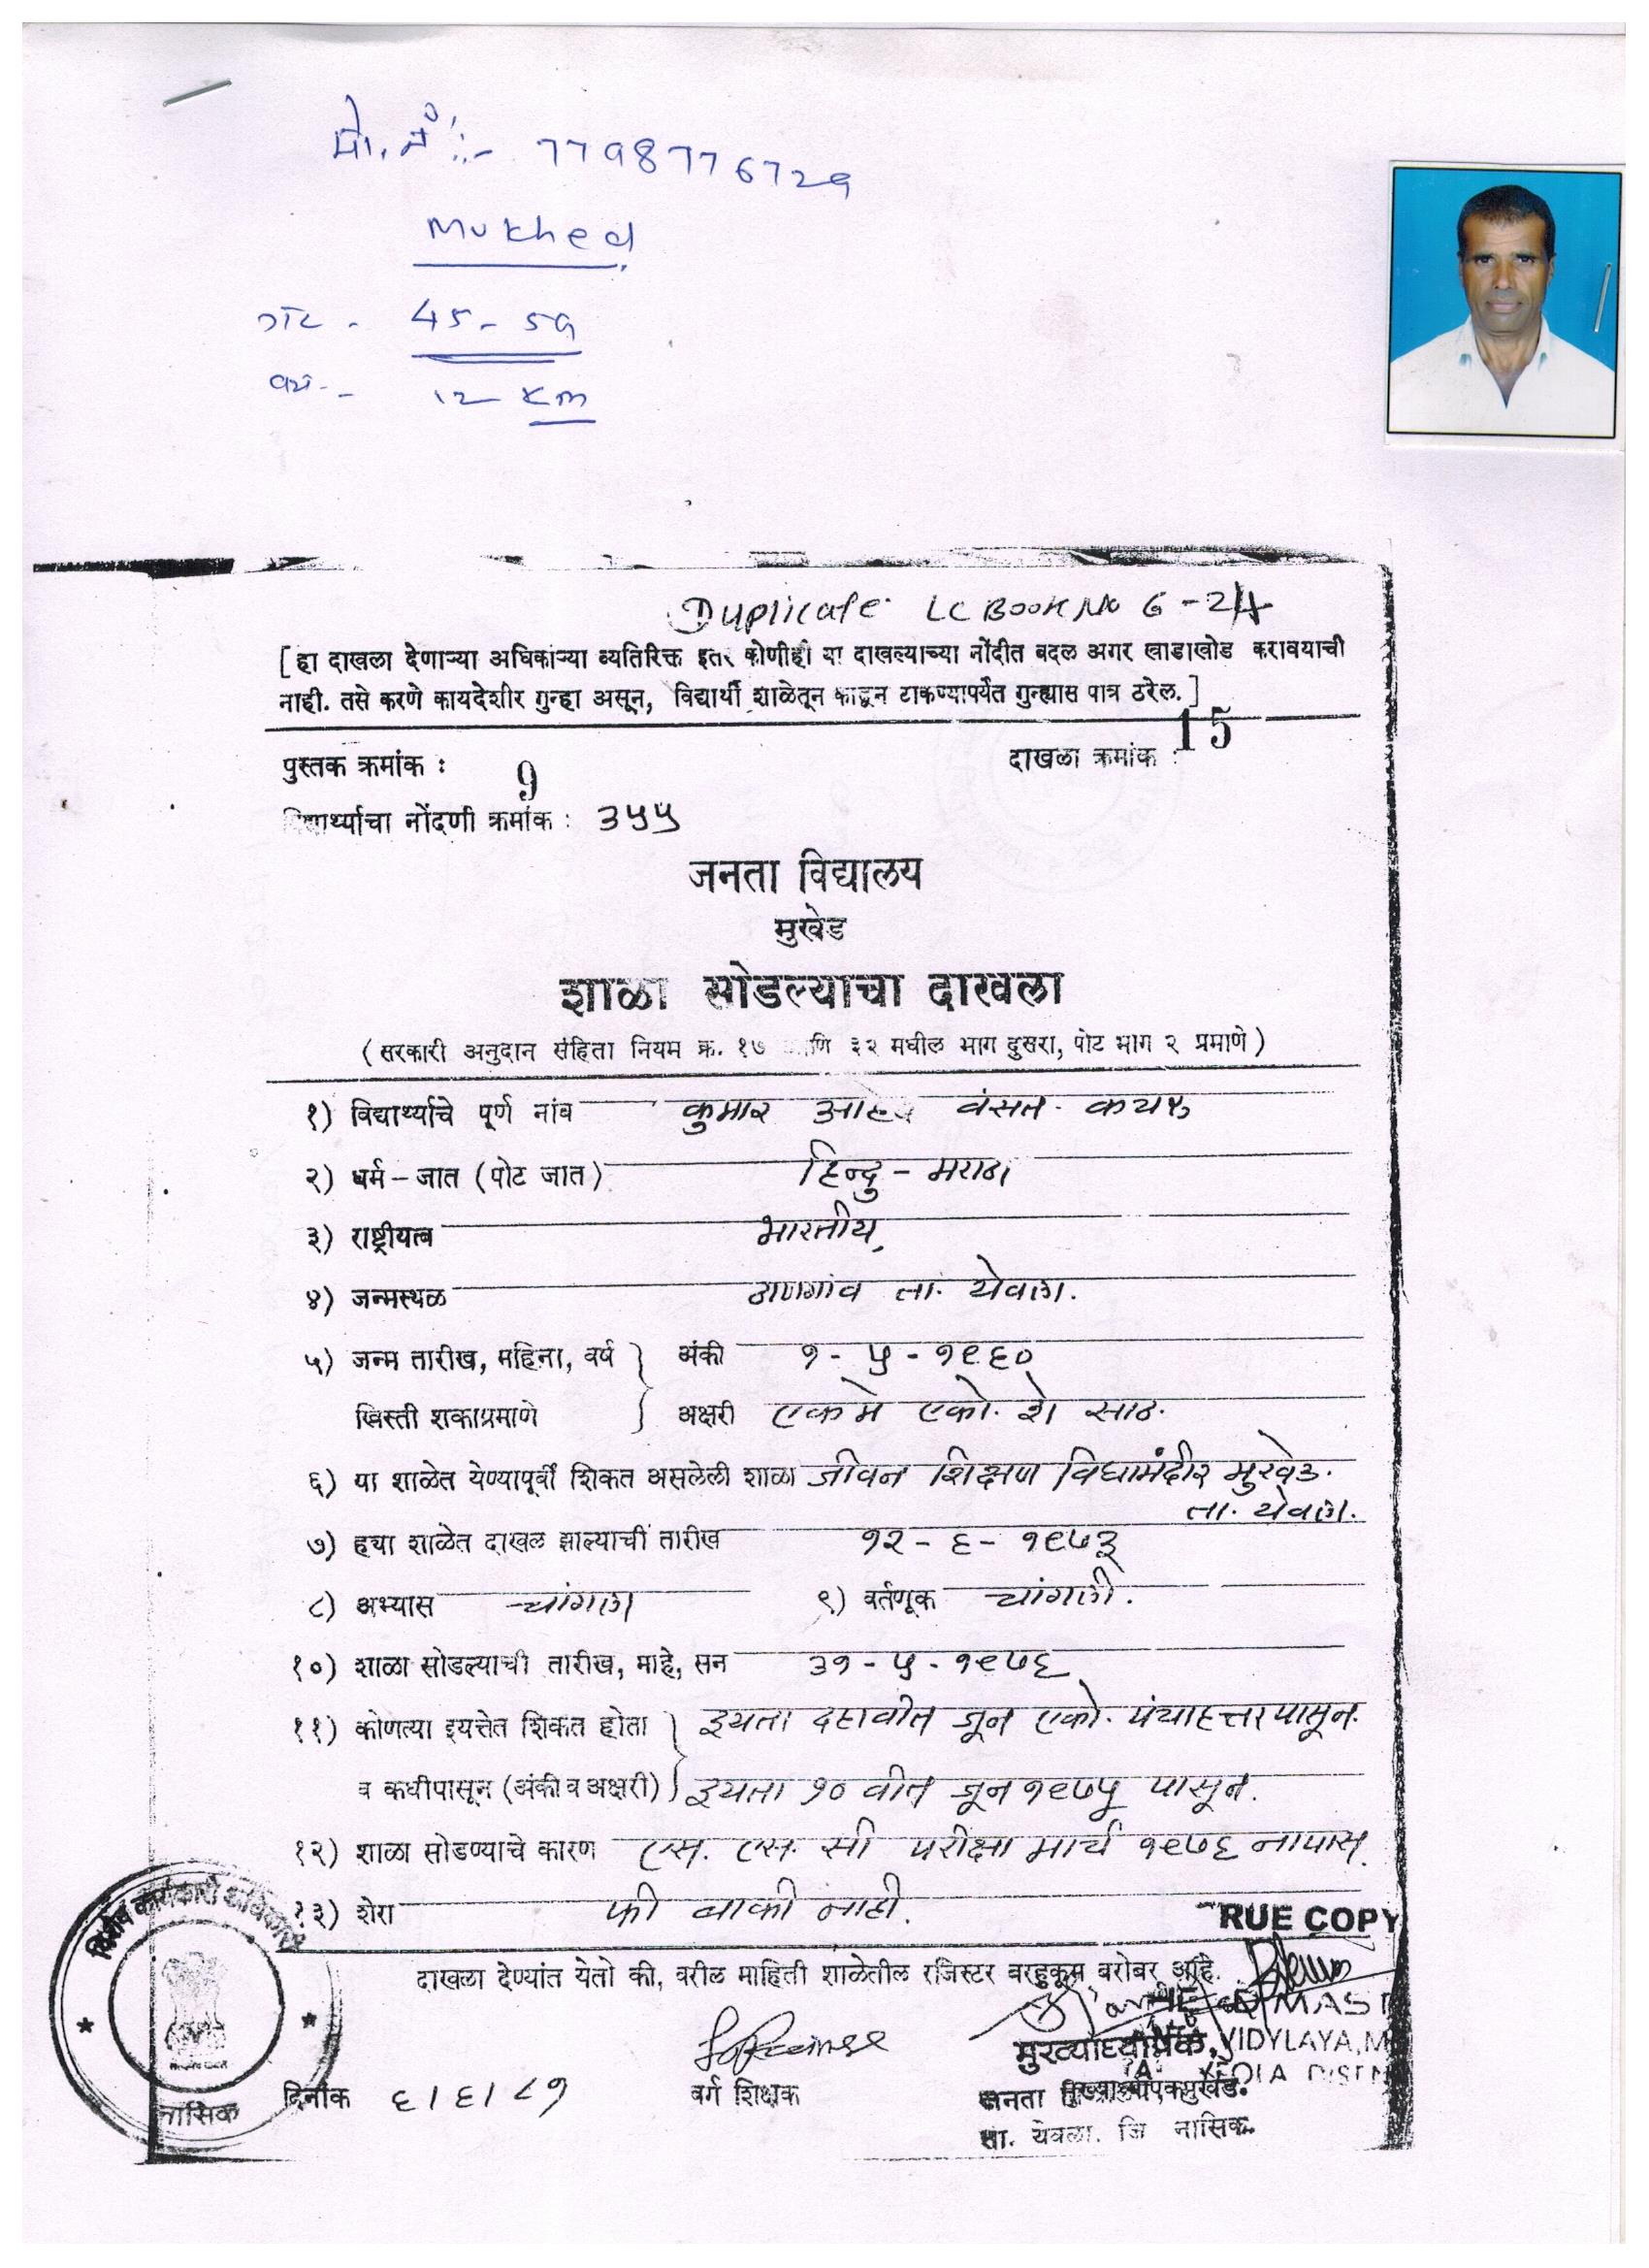 मो. नं :- 7798776729
Mukhed
गट - 45-59
12 Km
Duplicate LC Book No 6-24
[हा दाखला देणाऱ्या अधिकाऱ्या व्यतिरिक्त इतर कोणीही या दाखल्याच्या नोंदीत बदल अगर खाडाखोड करावयाची
नाही. तसे करणे कायदेशीर गुन्हा असून, विद्यार्थी शाळेतून काढून टाकण्यापर्यंत गुन्ह्यास पात्र ठरेल.]
पुस्तक क्रमांक : 9 दाखला क्रमांक : 15
विद्यार्थ्याचा नोंदणी क्रमांक : ३५५
जनता विद्यालय
मुखेड
शाळा सोडल्याचा दाखला
(सरकारी अनुदान संहिता नियम क्र. १७ आणि ३२ मधील भाग दुसरा, पोट भाग २ प्रमाणे)
१) विद्यार्थ्याचे पूर्ण नांव कुमार वंसत
२) धर्म – जात (पोट जात) हिन्दु - मराठा
३) राष्ट्रीयत्व भारतीय
४) जन्मस्थळ ठाणगांव ता. येवला.
५) जन्म तारीख, महिना, वर्ष } अंकी १ - ५ - १९६०
खिस्ती शकाप्रमाणे } अक्षरी एकमे एको. शे साठ.
६) या शाळेत येण्यापूर्वी शिकत असलेली शाळा जीवन शिक्षण विद्यामंदीर मुखेड.
ता. येवला.
७) ह्या शाळेत दाखल झाल्याची तारीख १२ - ६ - १९७३
८) अभ्यास चांगला ९) वर्तणूक चांगली.
१०) शाळा सोडल्याची तारीख, माहे, सन ३१ - ५ - १९७६
११) कोणत्या इयत्तेत शिकत होता } इयत्ता दहावीत जून एको. पंचाहत्तर पासून.
व कधीपासून (अंकी व अक्षरी) } इयत्ता १० वीत जून १९७५ पासून.
१२) शाळा सोडण्याचे कारण एस. एस. सी परीक्षा मार्च १९७६ नापास.
१३) शेरा फी बाकी नाही.
RUE COPY
दाखला देण्यांत येतो की, वरील माहिती शाळेतील रजिस्टर बरहुकूम बरोबर आहे.
VIDYLAYA, M
दिनांक ६/६/८१ वर्ग शिक्षक मुख्याध्यापक,
जनता मुखेड.
ता. येवला. जि नासिक.
नासिक